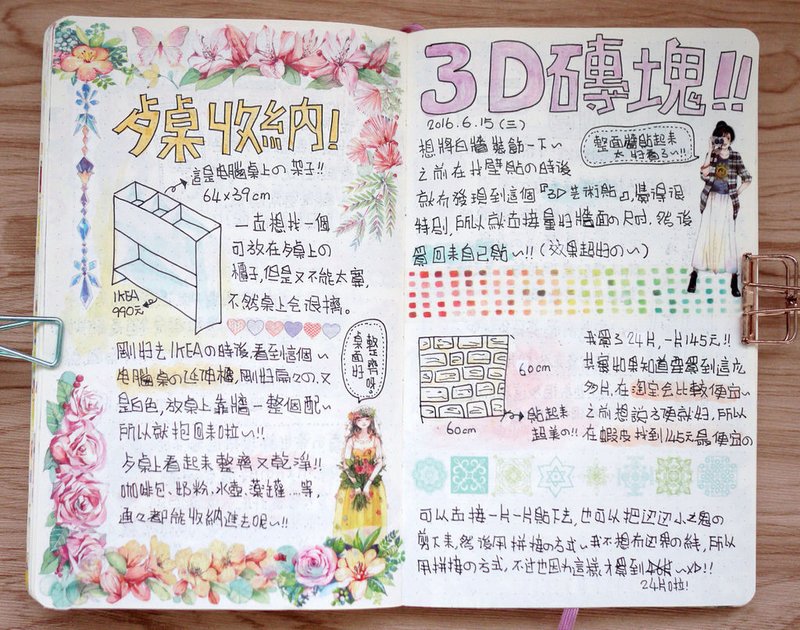 歺桌收納!
這是电腦桌上の架子!!
64x39cm
IKEA
990元
一直想找一個
可放在歺桌上の
櫃子,但是又不能太寬,
不然桌上会很擠。
剛好去IKEAの時後,看到這個~
电腦桌の延伸櫃,剛好扁々の.又
是白色,放桌上靠牆一整個配~
所以就抱回來啦~!!
歺桌上看起來整齊又乾淨!!
咖啡包、奶粉、水壺、藥罐…等,
通々都能收納進去呢~!!
整齊の
桌面好
3D磚塊!!
2016.6.15(三)
整面牆貼起來
太好看了~!!
想將白牆裝飾一下~
之前在找壁貼の時後
就有發現到這個『3D艺術貼』,覺得很
特別,所以就直接量好牆面の尺吋.然後
買回來自己貼~!!(效果超好の~)
60cm
60cm
貼起來
超美の!!
我買了24片,一片145元!!
其實如果知道要買到這広
多片,在淘宝会比較便宜~
之前想說方便就好,所以
在蝦皮找到145元最便宜の
可以直接一片一片貼下去,也可以把边边小
剪下來,然後用拼接の方式~我不想有边界の線,所以
用拼接の方式,不过也因为這樣才買到~xD!!
24片啦!